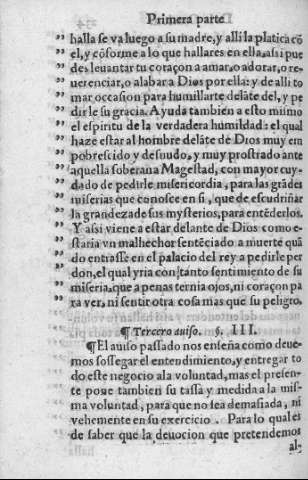 Primera parte
„ halla se va luego a su madre, y alli la platica cō
„ el, y cōforme a lo que hallares en ella: assi pue
„ des leuantar tu coraçon a amar, o adorar, o re-
„ uerenciar, o alabar a Dios por ella: y de alli to
„ mar occasion para humillarte delāte del, y pe
„ dirle su gracia. Ayuda tambien a esto mismo
„ el espiritu de la verdadera humildad: el qual
„ haze estar al hombre delāte de Dios muy em
„ pobrescido y desnudo, y muy prostrado ante
„ aquella soberana Magestad, con mayor cuy-
„ dado de pedirle misericordia, para las grādes
„ miserias que conosce en si, que de escudriñar
„ la grandeza de sus mysterios, para entēderlos.
„ Y assi viene a estar delante de Dios como e-
„ staria vn malhechor sentēciado a muerte quā
„ do entrasse en el palacio del rey a pedirle per
„ don, el qual yria con tanto sentimiento de su
„ miseria, que a penas ternia ojos, ni coraçon pa
„ ra ver, ni sentir otra cosa mas que su peligro.
¶ Tercero auiso. §. III.
¶ El auiso passado nos enseña como deue-
mos sossegar el entendimiento, y entregar to
do este negocio a la voluntad, mas el presen-
te pone tambien su tassa y medida a la mis-
ma voluntad, para que no sea demasiada, ni
vehemente en su exercicio. Para lo qual es
de saber que la deuocion que pretendemos
al-